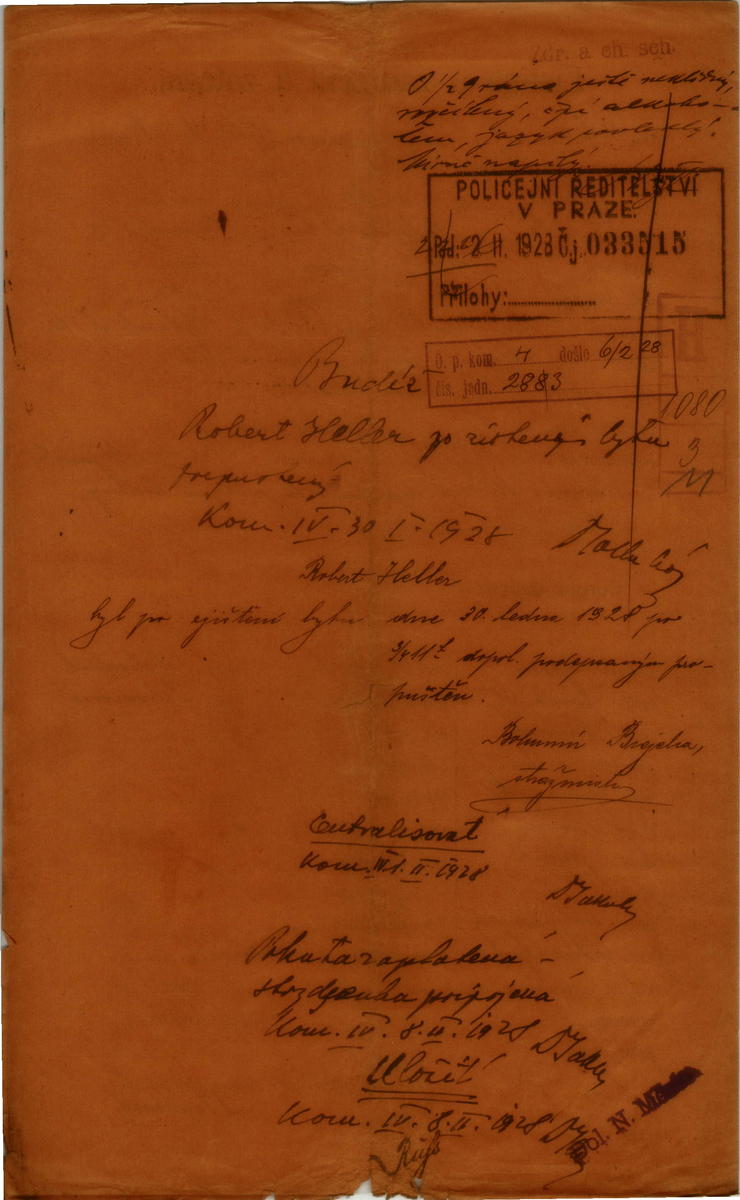 Zdr. a ch. sch.
O 1/2 9 ráno ještě neklidný,
, čpí alkoho-
lem, jazyk povleklý.
Mírně napilý.
POLICEJNÍ ŘEDITELSTVÍ
V PRAZE.
Pod: 2 II. 1928 Č.j. 033515
Přílohy:
O. p. kom. 4 došlo 6/2 28
čís. jedn. 2883
1080
3
M
Budiž
Robert Heller po zjištění bytu
propuštěný
Kom. IV. 30 I. 1928
Robert Heller
byl po zjištění bytu dne 30. ledna 1928 po
3/4 11 h dopol. podepsaným pro-
puštěn.
Bohumil Brejcha,
strážmistr
Centralisovat
Kom. IV. 1. II. 1928
Pokuta zaplatena -
stvrdzenka pripojená
Kom. IV. 8. II. 1928
Uložiť
Kom. IV. 8. II. 1928
Pol. N.